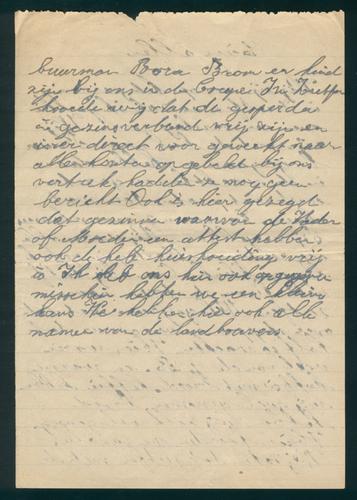 buurman Bora Brom en kind
zijn bij ons in de Groep In Zutfen
hoorde wij dat de gesperde
in gezinsverband vrij zijn en
weer direct voor gewerkt naar
alle kanten opgebeld bij ons
vertrek hadden ze nog geen
bericht Ook is hier gezegd
dat gezinnen waarvan de Vader
of Moeder een attest hebben
ook de hele huishouding vrij
is Ik heb ons hier ook opgegeven
misschien hebben we een kleine
kans We hebben hier ook alle
namen van de landbouwers